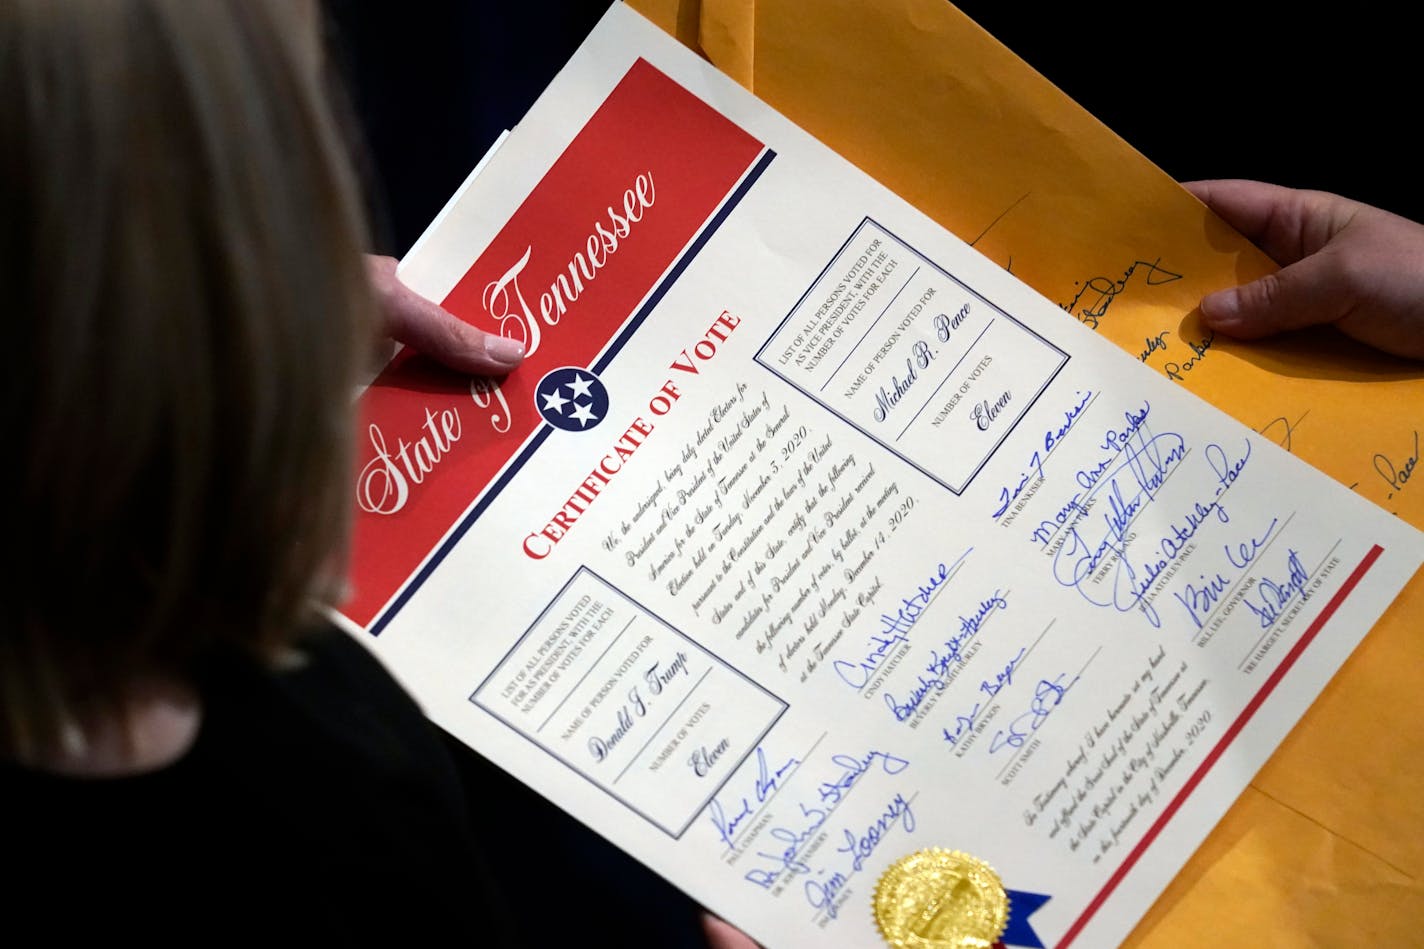 State of Tennessee
CERTIFICATE OF VOTE
We, the undersigned, being duly elected Electors for
President and Vice President of the United States of
America for the State of Tennessee at the General
Election held on Tuesday, November 3, 2020,
pursuant to the Constitution and the laws of the United
States and of this State, certify that the following
candidates for President and Vice President received
the following number of votes, by ballot, at the meeting
of electors held Monday, December 14, 2020,
at the Tennessee State Capitol.
LIST OF ALL PERSONS VOTED
FOR AS PRESIDENT, WITH THE
NUMBER OF VOTES FOR EACH
NAME OF PERSON VOTED FOR
Donald J. Trump
NUMBER OF VOTES
Eleven
LIST OF ALL PERSONS VOTED FOR
AS VICE PRESIDENT, WITH THE
NUMBER OF VOTES FOR EACH
NAME OF PERSON VOTED FOR
Michael R. Pence
NUMBER OF VOTES
Eleven
Paul Chapman
PAUL CHAPMAN
Dr. John L. Stanbery
DR. JOHN STANBERY
Jim Looney
JIM LOONEY
Cindy Hatcher
CINDY HATCHER
Beverly Knight-Hurley
BEVERLY KNIGHT-HURLEY
KATHY BRYSON
SCOTT SMITH
Tina Benkiser
TINA BENKISER
Mary Ann Parks
MARY ANN PARKS
TERRY ROLAND
Julia Atchley-Pace
JULIA ATCHLEY-PACE
Bill Lee
BILL LEE, GOVERNOR
Tre Hargett
TRE HARGETT, SECRETARY OF STATE
In Testimony whereof, I have hereunto set my hand
and affixed the Great Seal of the State of Tennessee at
the State Capitol in the City of Nashville, Tennessee,
on this fourteenth day of December, 2020
Parks
-Pace